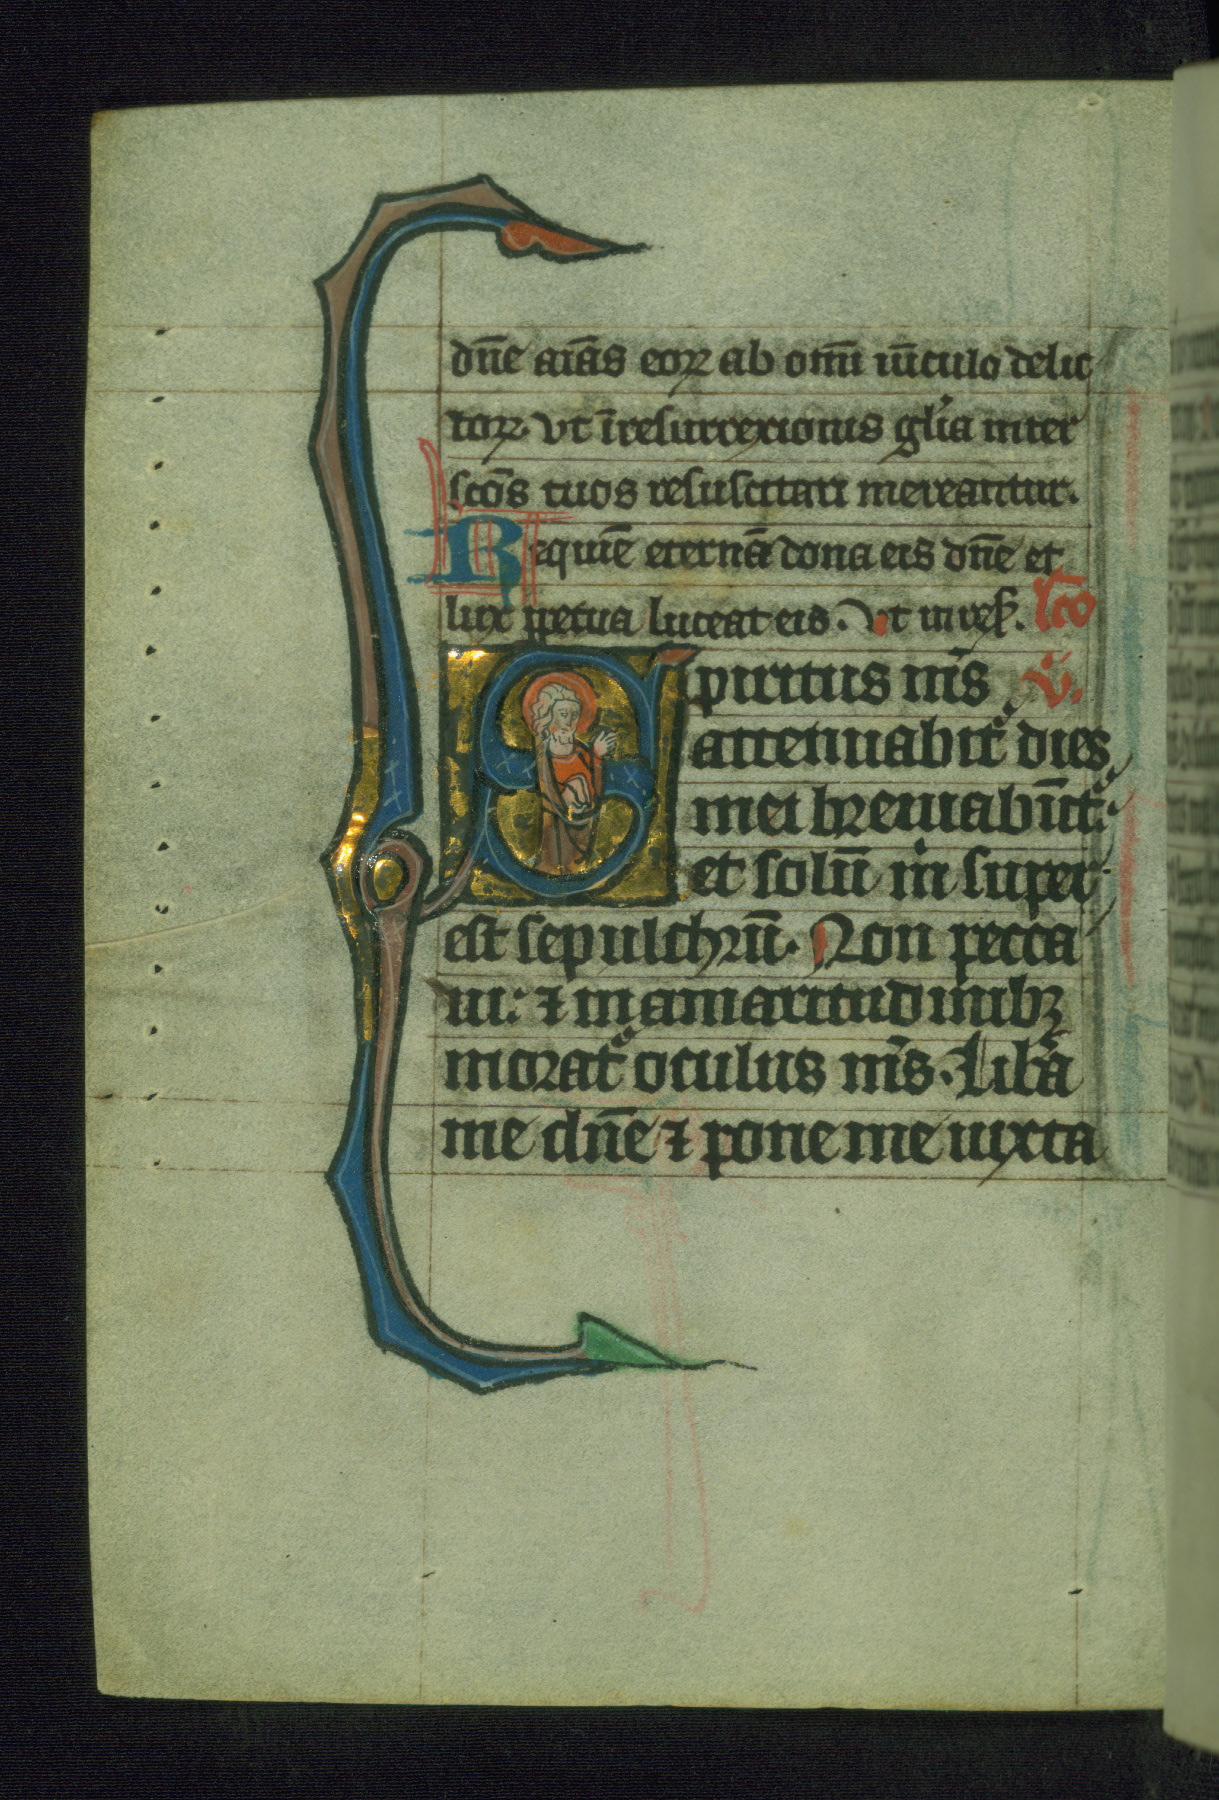 dn̄e aīas eoꝝ ab om̄i uīculo delic
toꝝ. vt ī resurrexionis gl̓ia inter
scōs tuos resuscitari mereantur.
Requiē eternā dona eis dn̄e et
lux ꝑpetua luceat eis. Vt in reſ. lc̄o
Spiritus m̄s v̄.
attenuabit᷑ dies
mei breuiabūt᷑.
et solū m̓ super
est sepulchrū. Non pecca
ui: ⁊ in amaritudinibꝫ
morat᷑ oculus m̄s. Lib̓a
me dn̄e ⁊ pone me iuxta